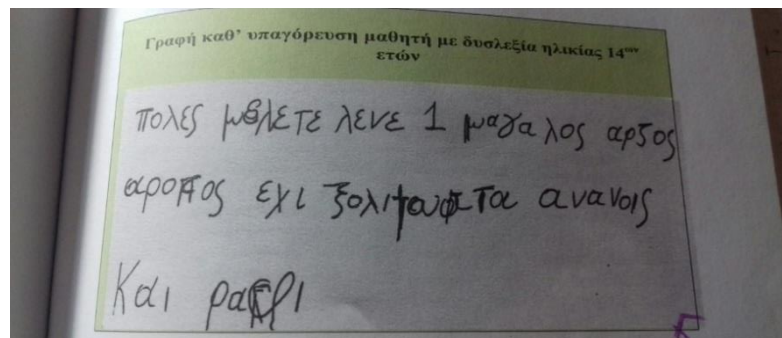 Γραφή καθ’ υπαγόρευση μαθητή με δυσλεξία ηλικίας 14ων
ετών
πολες μελετε λενε 1 μαγαλος αρζος
αροπος εχι ανανοις
και